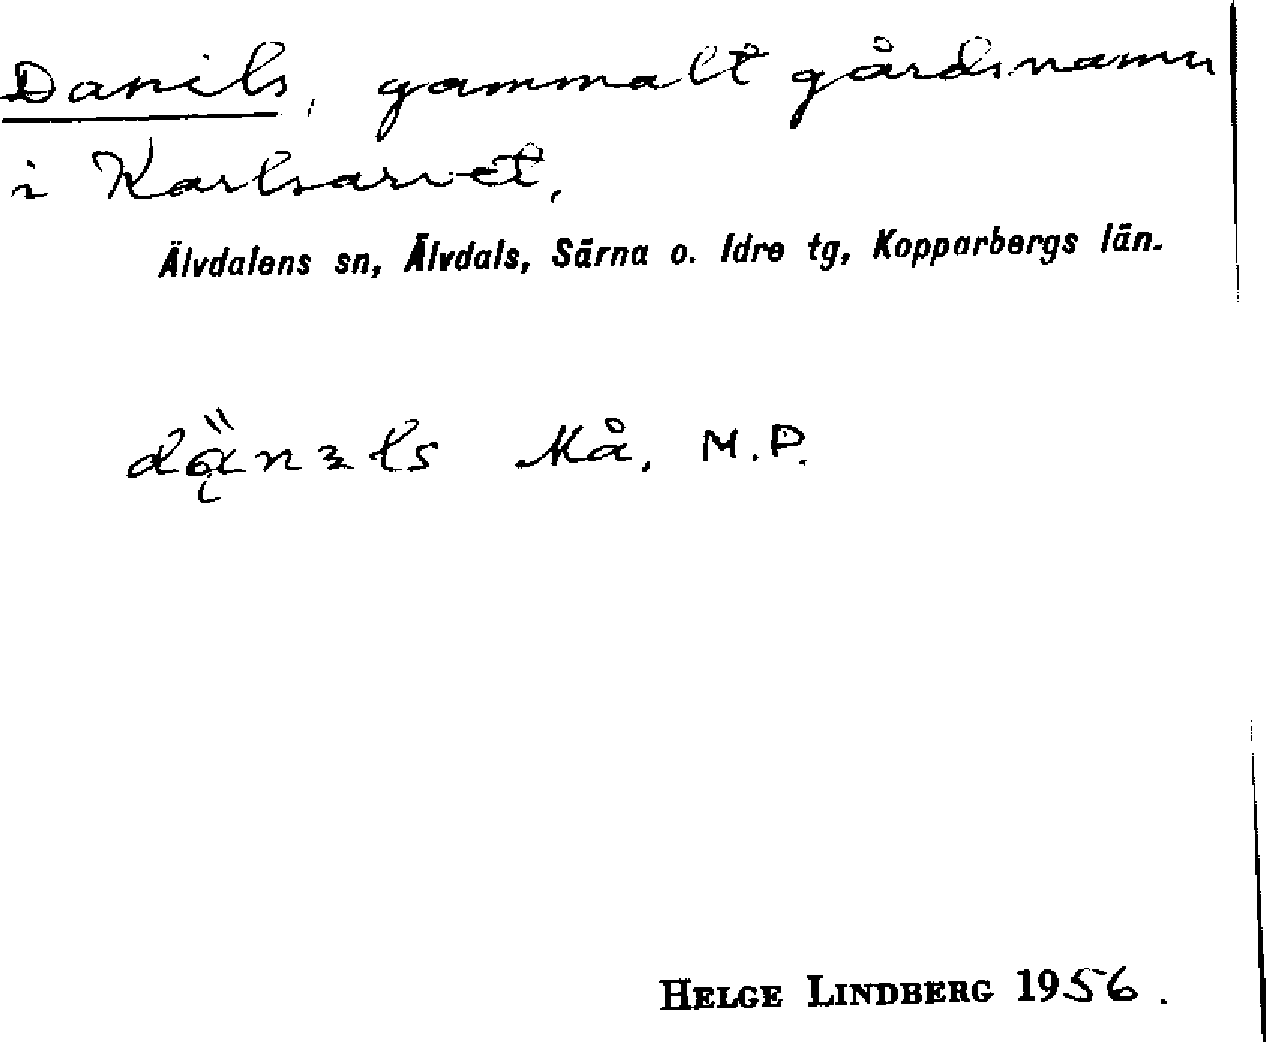 Danils, gammalt gårdsnamn
i Karlsarvet,
Älvdalens sn, Älvdals, Särna o. Idre tg, Kopparbergs län.
Må, M.P.
HELGE LINDBERG 1956.